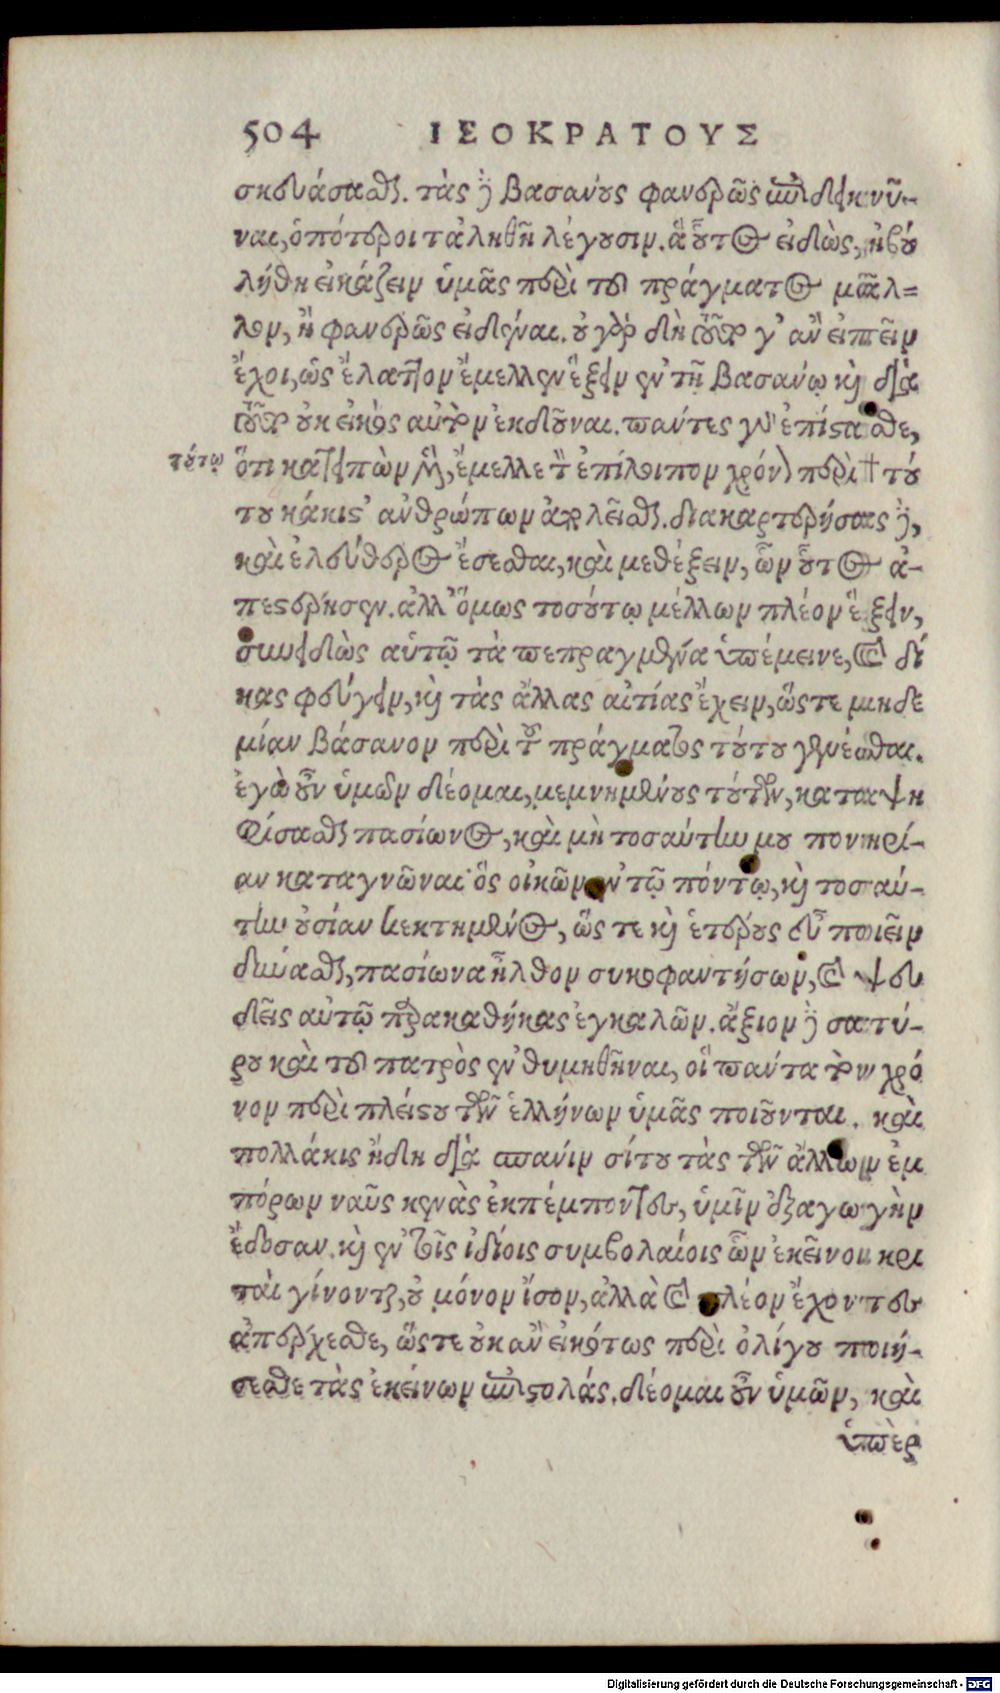 504 ΙΣΟΚΡΑΤΟΥΣ
σκευάσασθαι. τὰς δὲ βασάνους φανερῶς ἐπιδεικνύ-
ναι, ὁπότεροι τἀληθῆ λέγουσιν. ἃ οὗτος εἰδὼς, ἠβού
λήθη εἰκάζειν ὑμᾶς περὶ τοῦ πράγματος μᾶλ=
λον, ἢ φανερῶς εἰδέναι. οὐ γὰρ δὴ τοῦτό γ' ἂν εἰπεῖν
ἔχοι, ὡς ἔλαττον ἔμελλεν ἕξειν ἐν τῇ βασάνῳ καὶ διὰ
τοῦτο οὐκ εἰκὸς αὐτὸν ἐκδοῦναι. πάντες γὰρ ἐπίστασθε,
τούτῳ ὅτι κατειπὼν μὲν, ἔμελλε τὸν ἐπίλοιπον χρόνον περὶ † τού
του κάκιστ' ἀνθρώπων ἀπολεῖσθαι. διακαρτερήσας δὲ,
καὶ ἐλεύθερος ἔσεσθαι, καὶ μεθέξειν, ὧν οὗτος ἀ-
πεστέρησεν. ἀλλ' ὅμως τοσούτῳ μέλλων πλέον ἕξειν,
συνειδὼς αὑτῷ τὰ πεπραγμένα ὑπέμεινε, καὶ δί
κας φεύγειν, καὶ τὰς ἄλλας αἰτίας ἔχειν, ὥστε μηδε
μίαν βάσανον περὶ τοῦ πράγματος τούτου γενέσθαι.
ἐγὼ οὖν ὑμῶν δέομαι, μεμνημένους τούτων, καταψη
φίσασθαι πασίωνος, καὶ μὴ τοσαύτην μου πονηρί-
αν καταγνῶναι ὃς οἰκῶν ἐν τῷ πόντῳ, καὶ τοσαύ-
την οὐσίαν κεκτημένος, ὥστε καὶ ἑτέρους εὖ ποιεῖν
δύνασθαι, πασίωνα ἦλθον συκοφαντήσων, καὶ ψευ
δεῖς αὐτῷ παρακαθήκας ἐγκαλῶν. ἄξιον δὲ σατύ-
ρου καὶ τοῦ πατρὸς ἐνθυμηθῆναι, οἳ πάντα τὸν χρό
νον περὶ πλείστου τῶν ἑλλήνων ὑμᾶς ποιοῦνται. καὶ
πολλάκις ἤδη διὰ σπάνιν σίτου τὰς τῶν ἄλλων ἐμ
πόρων ναῦς κενὰς ἐκπέμποντες, ὑμῖν ἐξαγωγὴν
ἔδοσαν. καὶ ἐν τοῖς ἰδίοις συμβολαίοις ὧν ἐκεῖνοι κρι
ταὶ γίνονται, οὐ μόνον ἴσον, ἀλλὰ καὶ πλέον ἔχοντες
ἀπέρχεσθε, ὥστε οὐκ ἂν εἰκότως περὶ ὀλίγου ποιή-
σεσθε τὰς ἐκείνων ἐπιστολάς. δέομαι οὖν ὑμῶν, καὶ
ὑπὲρ
Digitalisierung gefördert durch die Deutsche Forschungsgemeinschaft - DFG